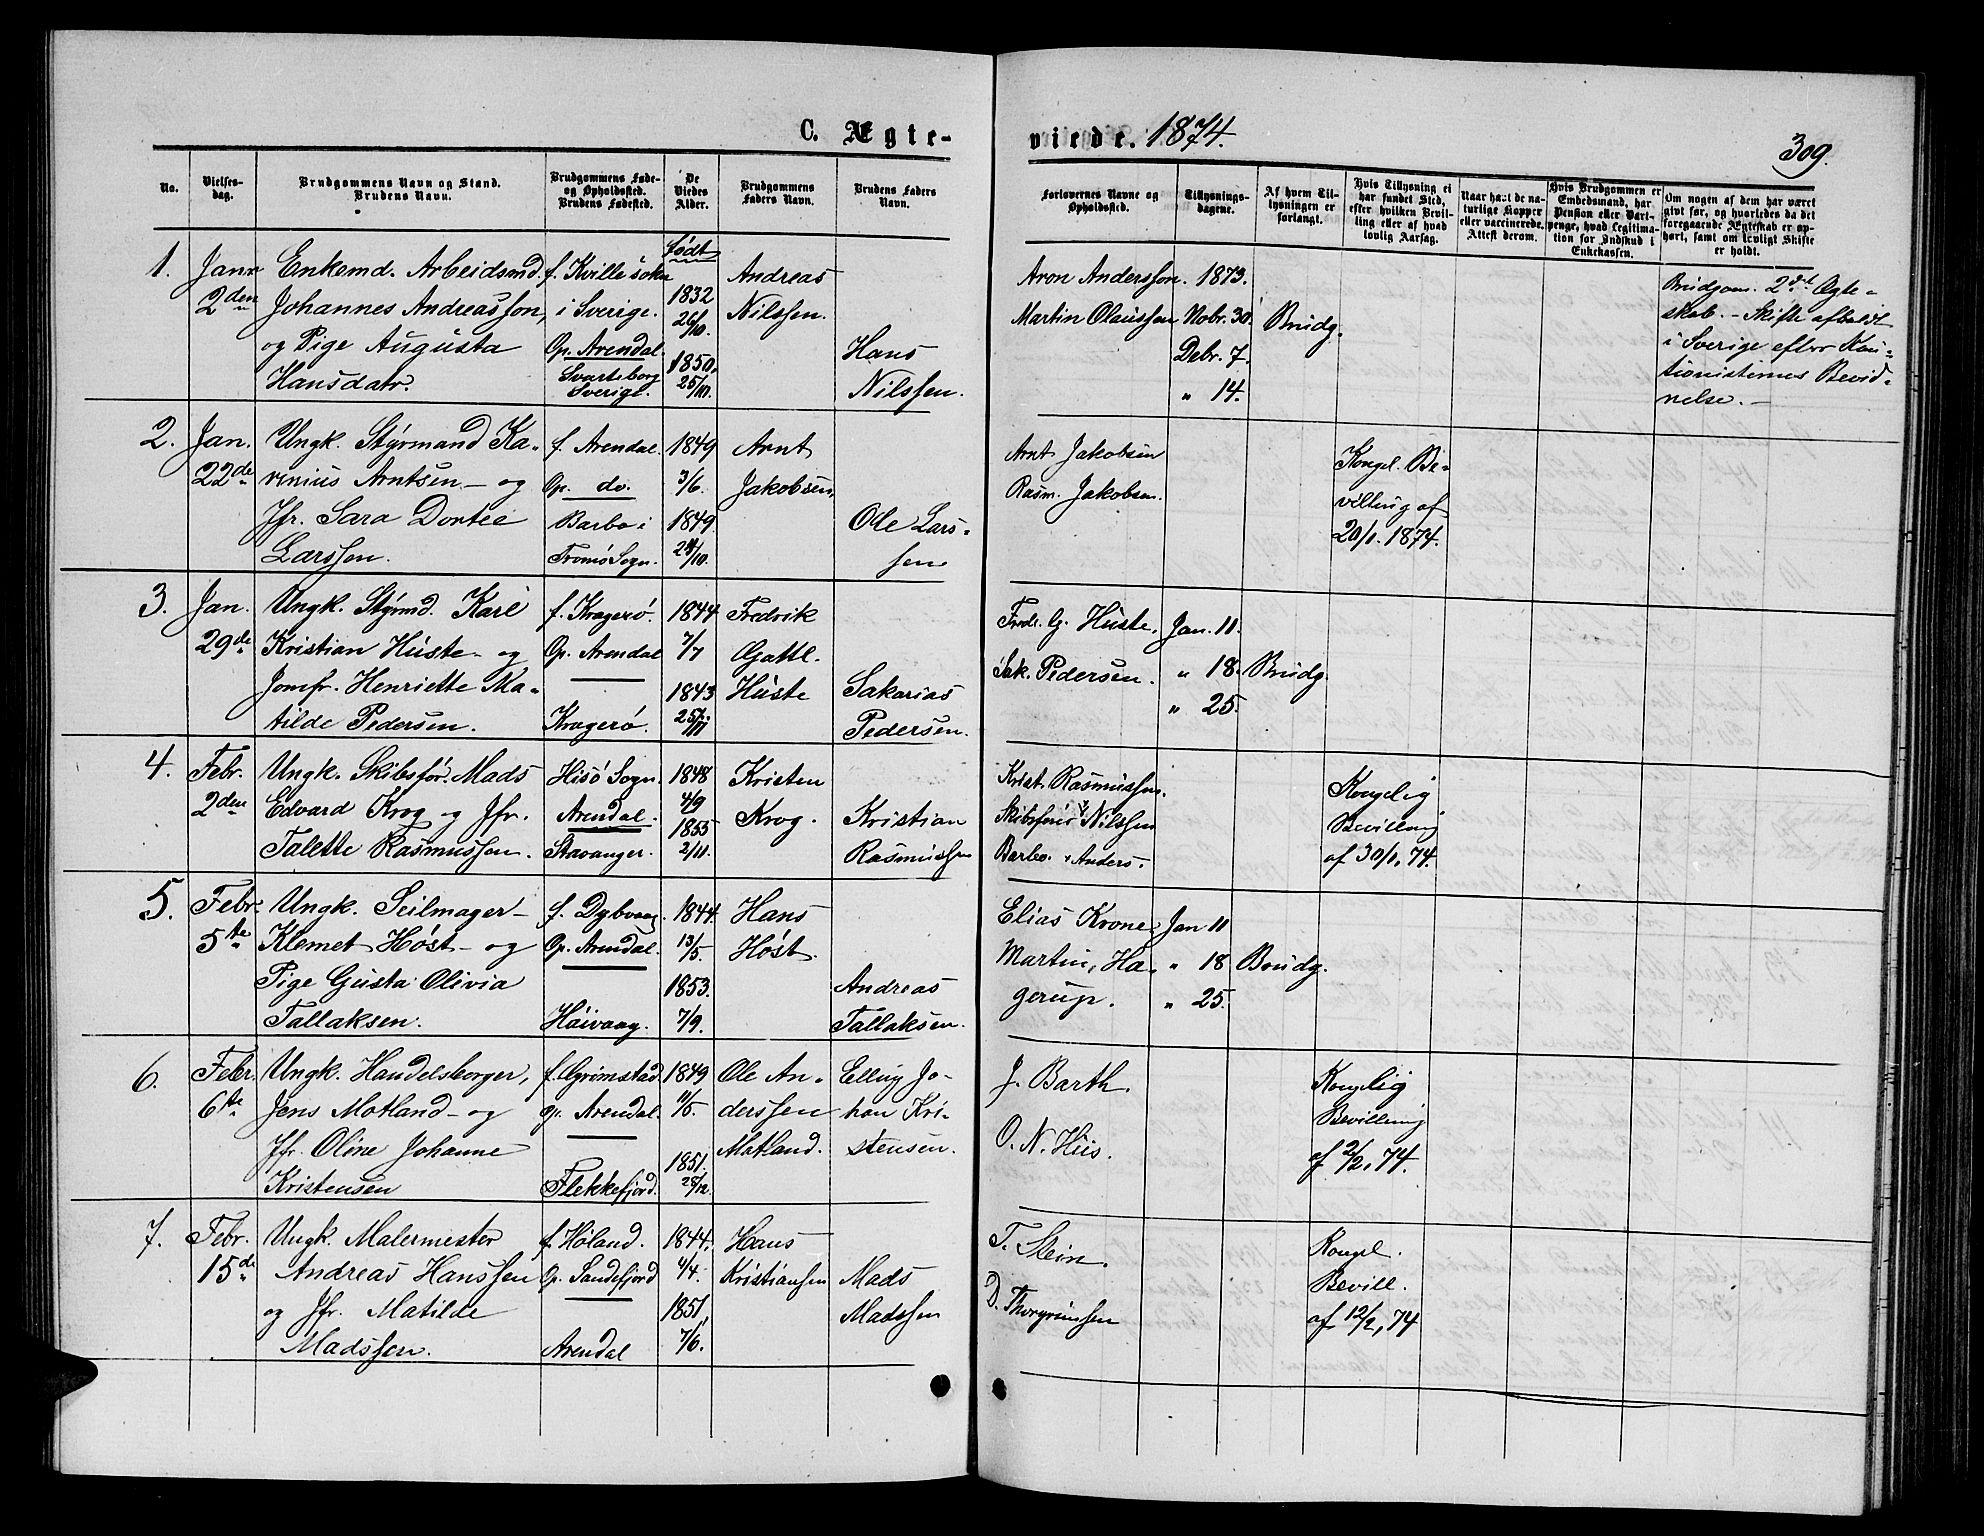 C. Ægte-
viede. 1874.
309.
No.
Vielses-
dag.
Brudgommens Navn og Stand.
Brudens Navn.
Brudgommens Føde-
og Opholdssted.
Brudens Fødested.
De
Viedes
Alder.
Brudgommens
Faders Navn.
Brudens Faders
Navn.
Forlovernes Navne og
Opholdssted.
Tillysnings-
dagene.
Af hvem Til-
lysningen er
forlangt.
Hvis Tillysning ei
har fundet Sted,
efter hvilken Bevil-
ling eller af hvad
lovlig Aarsag.
Naar havt de na-
turlige Kopper
eller vaccinerede.
Attest derom.
Hvis Brudgommen er
Embedsmand, har
Pension eller Vart-
penge, hvad Legitima-
tion for Indskud i
Enkekassen.
Om nogen af dem har været
givt før, og hvorledes da det
foregaaende Ægteskab er op-
hørt, samt om lovligt Skifte
er holdt.
1.
Janr
2den
Enkemd. Arbeidsmd.
Johannes Andreasson,
og Pige Augusta
Hansdatr.
f. Kville sokn
i Sverige.
Op. Arendal.
Svarteborg
Sverige.
Født
1832
26/10.
1850.
25/10.
Andreas
Nilssen.
Hans
Nilssen.
Aron Andersson.
Martin Olaussen
1873.
Nobr. 30.
Debr. 7.
" 14.
Brudg.
Brudgom. 2det Ægte-
skab. - Skifte afholdt
i Sverige efter Kau-
tionisternes Bevid-
nelse. -
2.
Jan.
22de
Ungk. Styrmand Ka-
renius Arntsen - og
Jfr. Sara Dortee
Larssen.
f. Arendal.
Op. do.
Barbo i
Tromø Sogn.
1849
3/6.
1849.
24/10.
Arnt
Jakobsen.
Ole Lars-
sen
Arnt Jakobsen
Rasm. Jakobsen.
Kongel. Be-
villing af
20/1. 1874.
3.
Jan.
29de
Ungk. Styrmd. Karl
Kristian Hüste - og
Jomfr. Henriette Ma-
tilde Pedersen.
f. Kragerø.
Op. Arendal
Kragerø.
1844
7/7
1843
25/11
Fredrik
Gottl.
Hüste
Sakarias
Pedersen.
Fredr. G. Hüste.
Sak. Pedersen.
Jan. 11.
" 18.
" 25.
Brudg.
4.
Febr.
2den
Ungk. Skibsfør. Mads
Edvard Krog og Jfr.
Talette Rasmussen.
Hisø Sogn.
Arendal.
Stavanger.
1848
4/9
1855
2/11.
Kristen
Krog.
Kristian
Rasmussen
Krist. Rasmussen.
Skibsfører Nilssen
Barbo. Anders.
Kongelig
Bevilling
af 30/1, 74.
5.
Febr.
5te
Ungk. Seilmager -
Klemet Høst - og
Pige Gusta Olivia
Tallaksen.
f. Dybvaag.
Op. Arendal.
Høivaag.
1844.
13/5.
1853.
7/9.
Hans
Høst.
Andreas
Tallaksen.
Elias Krone
Martin, Ha-
gerup.
Jan 11
" 18
" 25.
Brudg.
6.
Febr.
6te
Ungk. Handelsborger,
Jens Motland - og
Jfr. Oline Johanne
Kristensen
f. Grimstad.
op. Arendal.
Flekkefjord.
1849
11/5.
1851.
25/12.
Ole An-
derssen
Matland.
Elling Jo-
han Kri-
stensen.
J. Barth.
O. N. Hüs.
Kongelig
Bevilling
af 2/2, 74.
7.
Febr.
15de
Ungk. Malermester
Andreas Hanssen
og Jfr. Matilde
Madssen.
f. Høland.
Op. Sandefjord
Arendal
1844.
4/4.
1851,
7/6.
Hans
Kristiansen
Mads
Madssen
T. Stein.
D. Thorgrimsen
Kongel.
Bevill.
af 12/2, 74